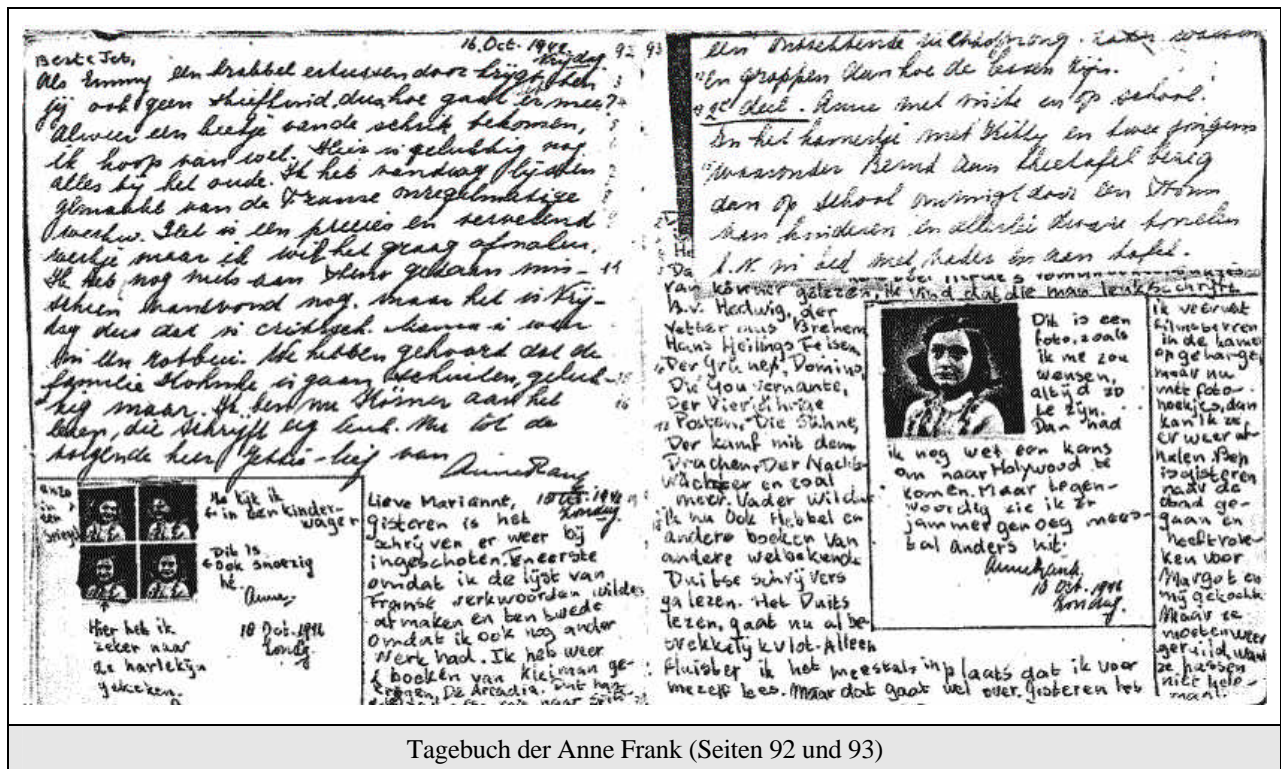 16 Oct. 1942
Vrijdag
92 93
Beste Jet,
Als Emmy een krabbel ertussen door krijgt, ben
jij ook geen stiefkind, dus hoe gaat er mee?
Alweer een beetje van de schrik bekomen,
ik hoop van wel. Hier is gelukkig nog
alles bij het oude. Ik heb vandaag lijsten
gemaakt van de Franse onregelmatige
werkw. Het is een precies en vervelend
werkje maar ik wil het graag afmaken.
Ik heb nog niets aan Steno gedaan mis-
schien vanavond nog, maar het is Vrij-
dag dus dat is critisch. Mama is weer
in een
We hebben gehoord dat de
familie is gaan schuilen, geluk-
kig maar. Ik ben nu Körner aan het
lezen, die schrijft erg leuk. Nu tot de
volgende keer Jetais-lief van
Anne Frank
anzo
in
een
spiegel
Ho kijk ik
in een kinder-
wager
Dit is
ook snoezig
hè.
Anne
Hier heb ik
zeker naar
de harlekijn
gekeken.
18 Oct. 1942
Zondg.
Lieve Marianne,
18 Oct. 1942
Zondag.
gisteren is het
schrijven er weer bij
ingeschoten. Teneerste
omdat ik de lijst van
Franse werkwoorden wilde
afmaken en ten twede
omdat ik ook nog ander
werk had. Ik heb weer
2 boeken van Kleiman ge-
kregen, De Arcadia,
een
En grappen dan hoe de lessen zijn.
2e deel. Anne met visite en op school.
In het kamertje met Kitty en twee jongens
waaronder Bernd aan theetafel bezig
dan op school omringd door een stoom
van kinderen en allerlei dwaze tonelen
b.v. in bed met vader en aan tafel.
van körner gelezen, ik vind dat die man leuk schrijft
B.v. Hedwig, der
Vetter aus Brehem
Hans Heilings Felsen
Der Grüne, Domino,
Die Gouvernante,
Der Vierjährige
Posten, Die Sühne,
Der Kamf mit dem
Drachen, Der Nacht-
wächter en zoal
meer. Vader wil dat
ik nu ook Hebbel en
andere boeken van
andere welbekende
Duitse schrijvers
ga lezen. Het Duits
lezen, gaat nu al be-
trekkelijk vlot. Alleen
fluister ik het meestal inplaats dat ik voor
mezelf lees. Maar dat gaat wel over. Gisteren heb
Dit is een
foto, zoals
ik me zou
wensen,
altijd zo
te zijn.
Dan had
ik nog wel een kans
om naar Holywood te
komen. Maar tegen-
woordig zie ik er
jammer genoeg mees-
tal anders uit.
Anne Frank.
18 Oct. 1942
Zondag.
ik
filmsterren
in de kamer
opgehangen,
maar nu
met foto-
hoekjes, dan
kan ik ze
er weer af-
halen. Bep
is gisteren
naar de
stad ge-
gaan en
heeft rok-
ken voor
Margot en
mij gekocht
Maar ze
moeten weer
geruild, want
ze passen
niet hele-
maal.
Tagebuch der Anne Frank (Seiten 92 und 93)